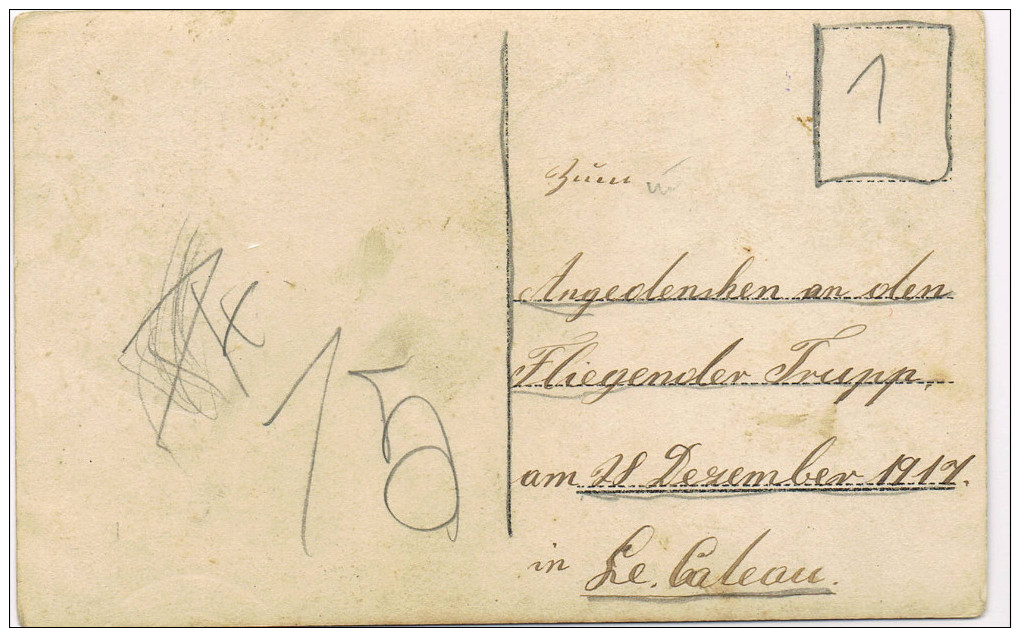 1
Zum
Angedenken an den
Fliegender Trupp.
am 28 Dezember 1917.
in Le. Cateau.
15